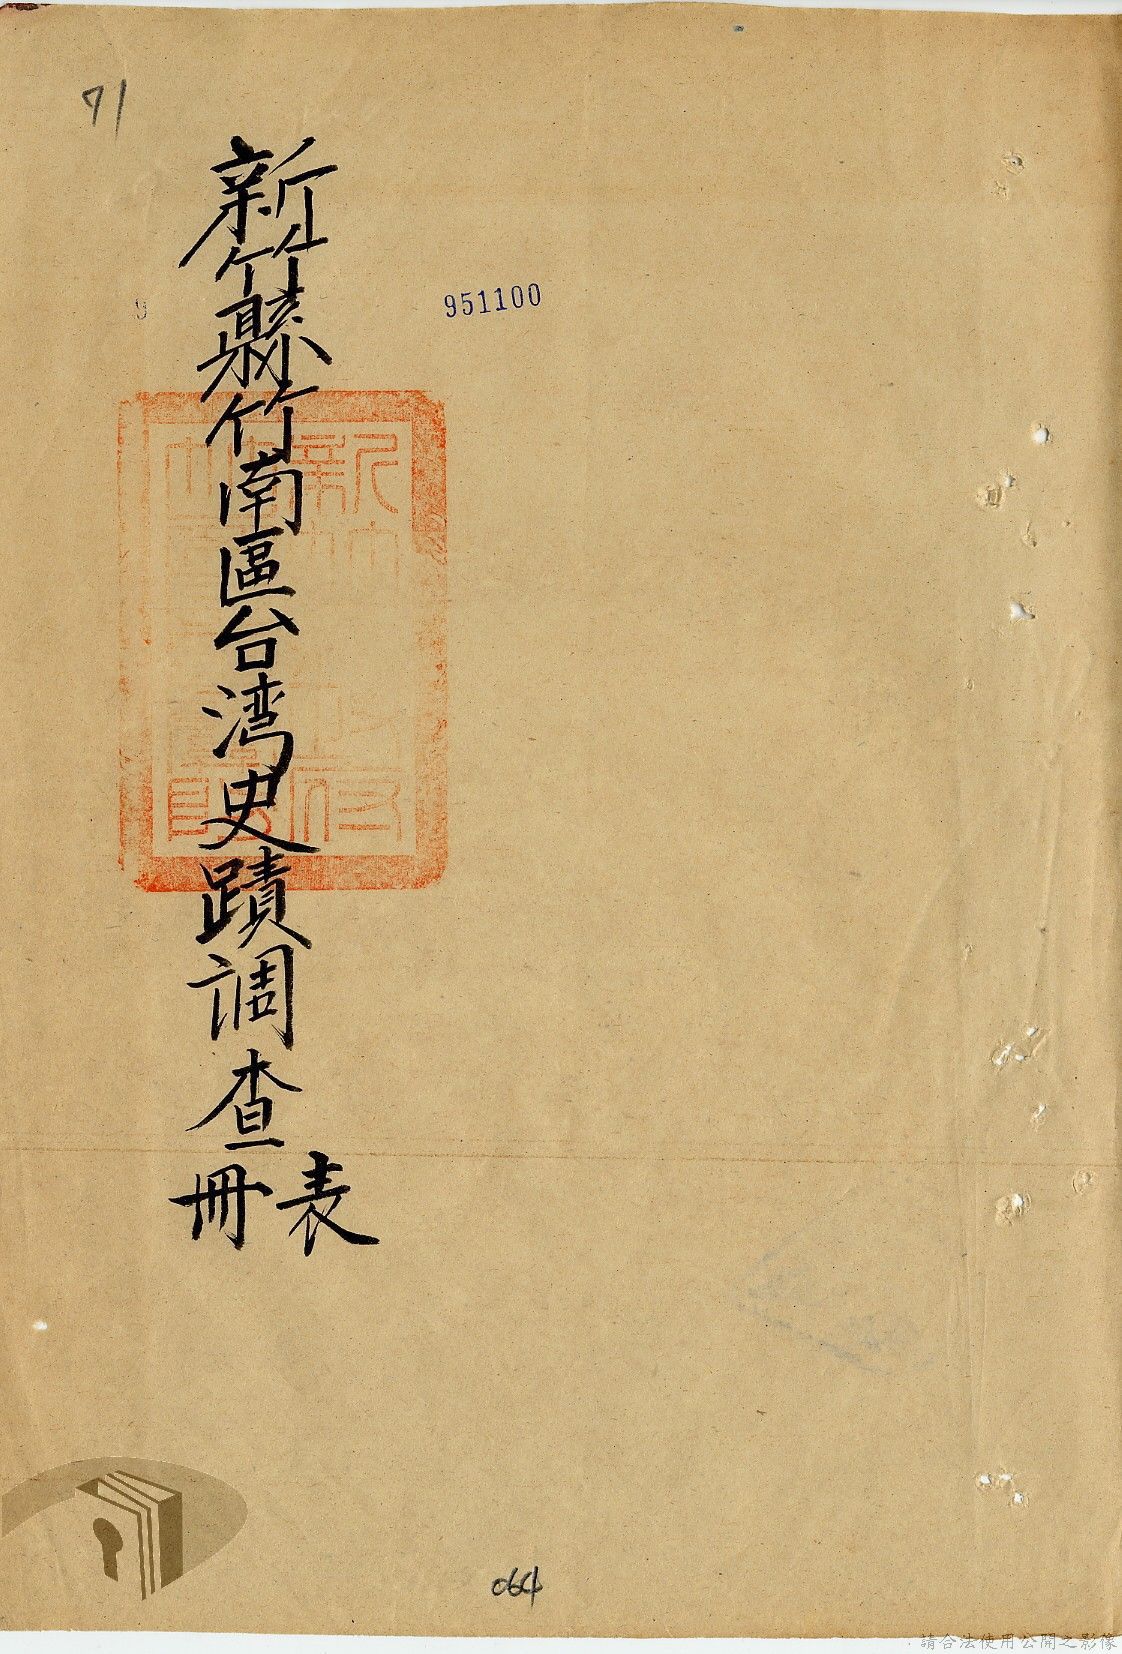 71
951100
新竹縣竹南區台湾史蹟調查表冊
064
請合法使用公開之影像